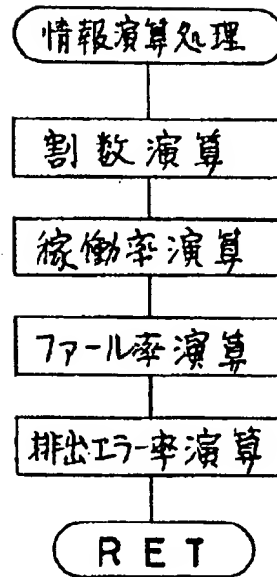 情報演算処理
割数演算
稼働率演算
ファール率演算
排出エラー率演算
RET